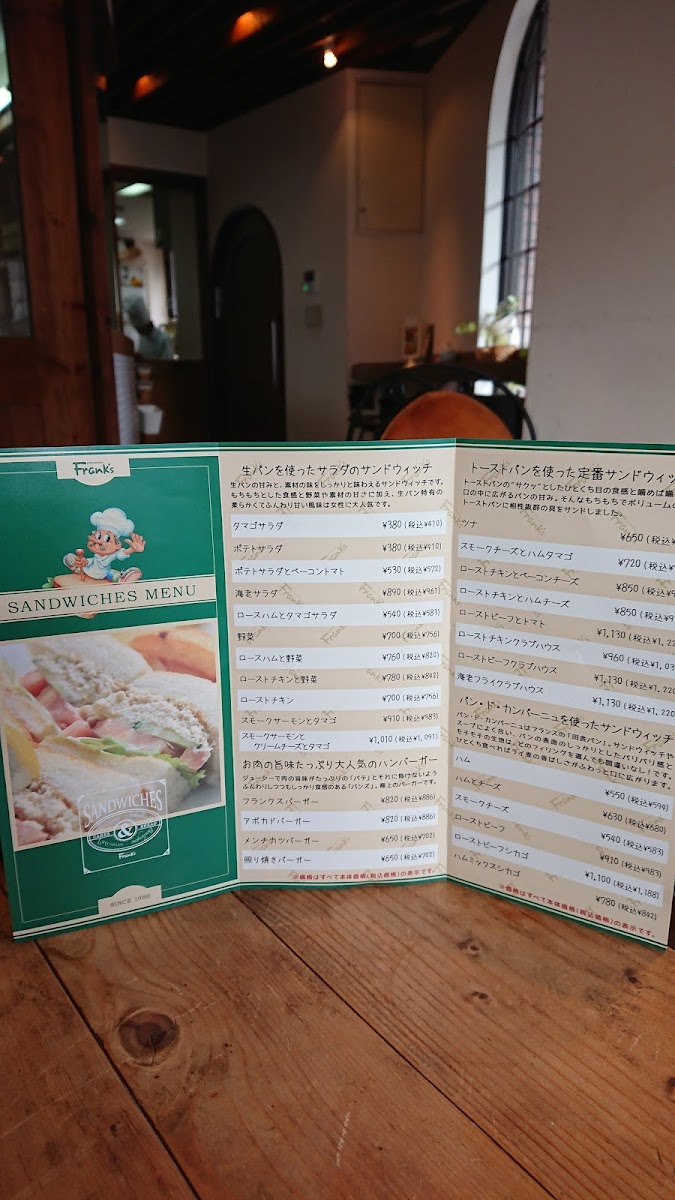 Frank's
SANDWICHES MENU
SANDWICHES
&
Frank's
SINCE 1980
生パンを使ったサラダのサンドウィッチ
生パンの甘みと、素材の味をしっかりと味わえるサンドウィッチです。
もちもちとした食感と野菜や素材の甘さに加え、生パン特有の
柔らかくてふんわり甘い風味は女性に大人気です。
タマゴサラダ ¥380(税込¥410)
ポテトサラダ ¥380(税込¥410)
ポテトサラダとベーコントマト ¥530(税込¥572)
海老サラダ ¥890(税込¥961)
ロースハムとタマゴサラダ ¥540(税込¥583)
野菜 ¥700(税込¥756)
ロースハムと野菜 ¥760(税込¥820)
ローストチキンと野菜 ¥780(税込¥842)
ローストチキン ¥700(税込¥756)
スモークサーモンとタマゴ ¥910(税込¥983)
スモークサーモンと
クリームチーズとタマゴ ¥1,010(税込¥1,091)
お肉の旨味たっぷり大人気のハンバーガー
ジューシーで肉の旨味がたっぷりの「パテ」とそれに負けないよう
ふんわりしつつもしっかり食感のある「バンズ」。極上のバーガーです。
フランクスバーガー ¥820(税込¥886)
アボカドバーガー ¥820(税込¥886)
メンチカツバーガー ¥650(税込¥702)
照り焼きバーガー ¥650(税込¥702)
※価格はすべて本体価格(税込価格)の表示です。
トーストパンを使った定番サンドウィッ
トーストパンの“サクッ”としたひとくち目の食感と噛めば噛
口の中に広がるパンの甘み。そんなもちもちでボリュームの
トーストパンに相性抜群の具をサンドしました。
ツナ ¥650(税込
スモークチーズとハムタマゴ ¥720(税込
ローストチキンとベーコンチーズ ¥850(税込¥9
ローストチキンとハムチーズ ¥850(税込¥9
ローストビーフとトマト ¥1,130(税込¥1,22
ローストチキンクラブハウス ¥960(税込¥1,03
ローストビーフクラブハウス ¥1,130(税込¥1,220
海老フライクラブハウス ¥1,130(税込¥1,220
パン・ド・カンパーニュを使ったサンドウィッチ
パン・ド・カンパーニュはフランスの「田舎パン」。サンドウィッチや
スープによく合い、パンの表面のしっかりとしたパリパリ感と
モチモチの生地は、どのフィリングを選んでも間違いなし!です。
ひとくち食べればライ麦の香ばしさがふわっと口に広がります。
ハム ¥550(税込¥594)
ハムとチーズ ¥630(税込¥680)
スモークチーズ ¥540(税込¥583)
ローストビーフ ¥910(税込¥983)
ローストビーフシカゴ ¥1,100(税込¥1,188)
ハムミックスシカゴ ¥780(税込¥842)
※価格はすべて本体価格(税込価格)の表示です。